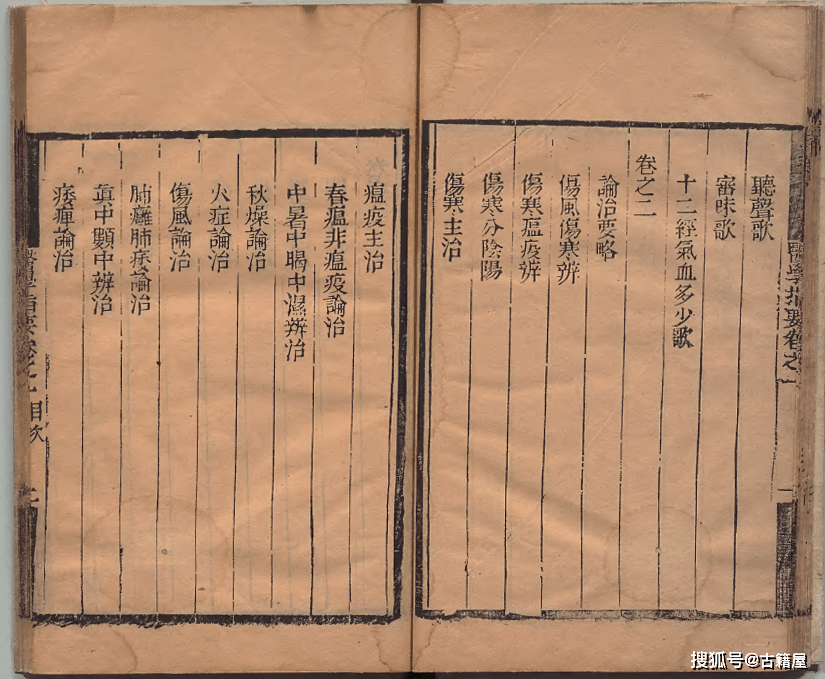 聽聲歌
審味歌
十二經氣血多少歌
卷之二
論治要略
傷風傷寒辨
傷寒瘟疫辨
傷寒分陰陽
傷寒主治
瘟疫主治
春瘟非瘟疫論治
中暑中暍中濕辨治
秋燥論治
火症論治
傷風論治
肺癰肺痿論治
真中類中辨治
痿痺論治
醫學指要卷之一
醫學指要卷之一目次
搜狐号@古籍屋